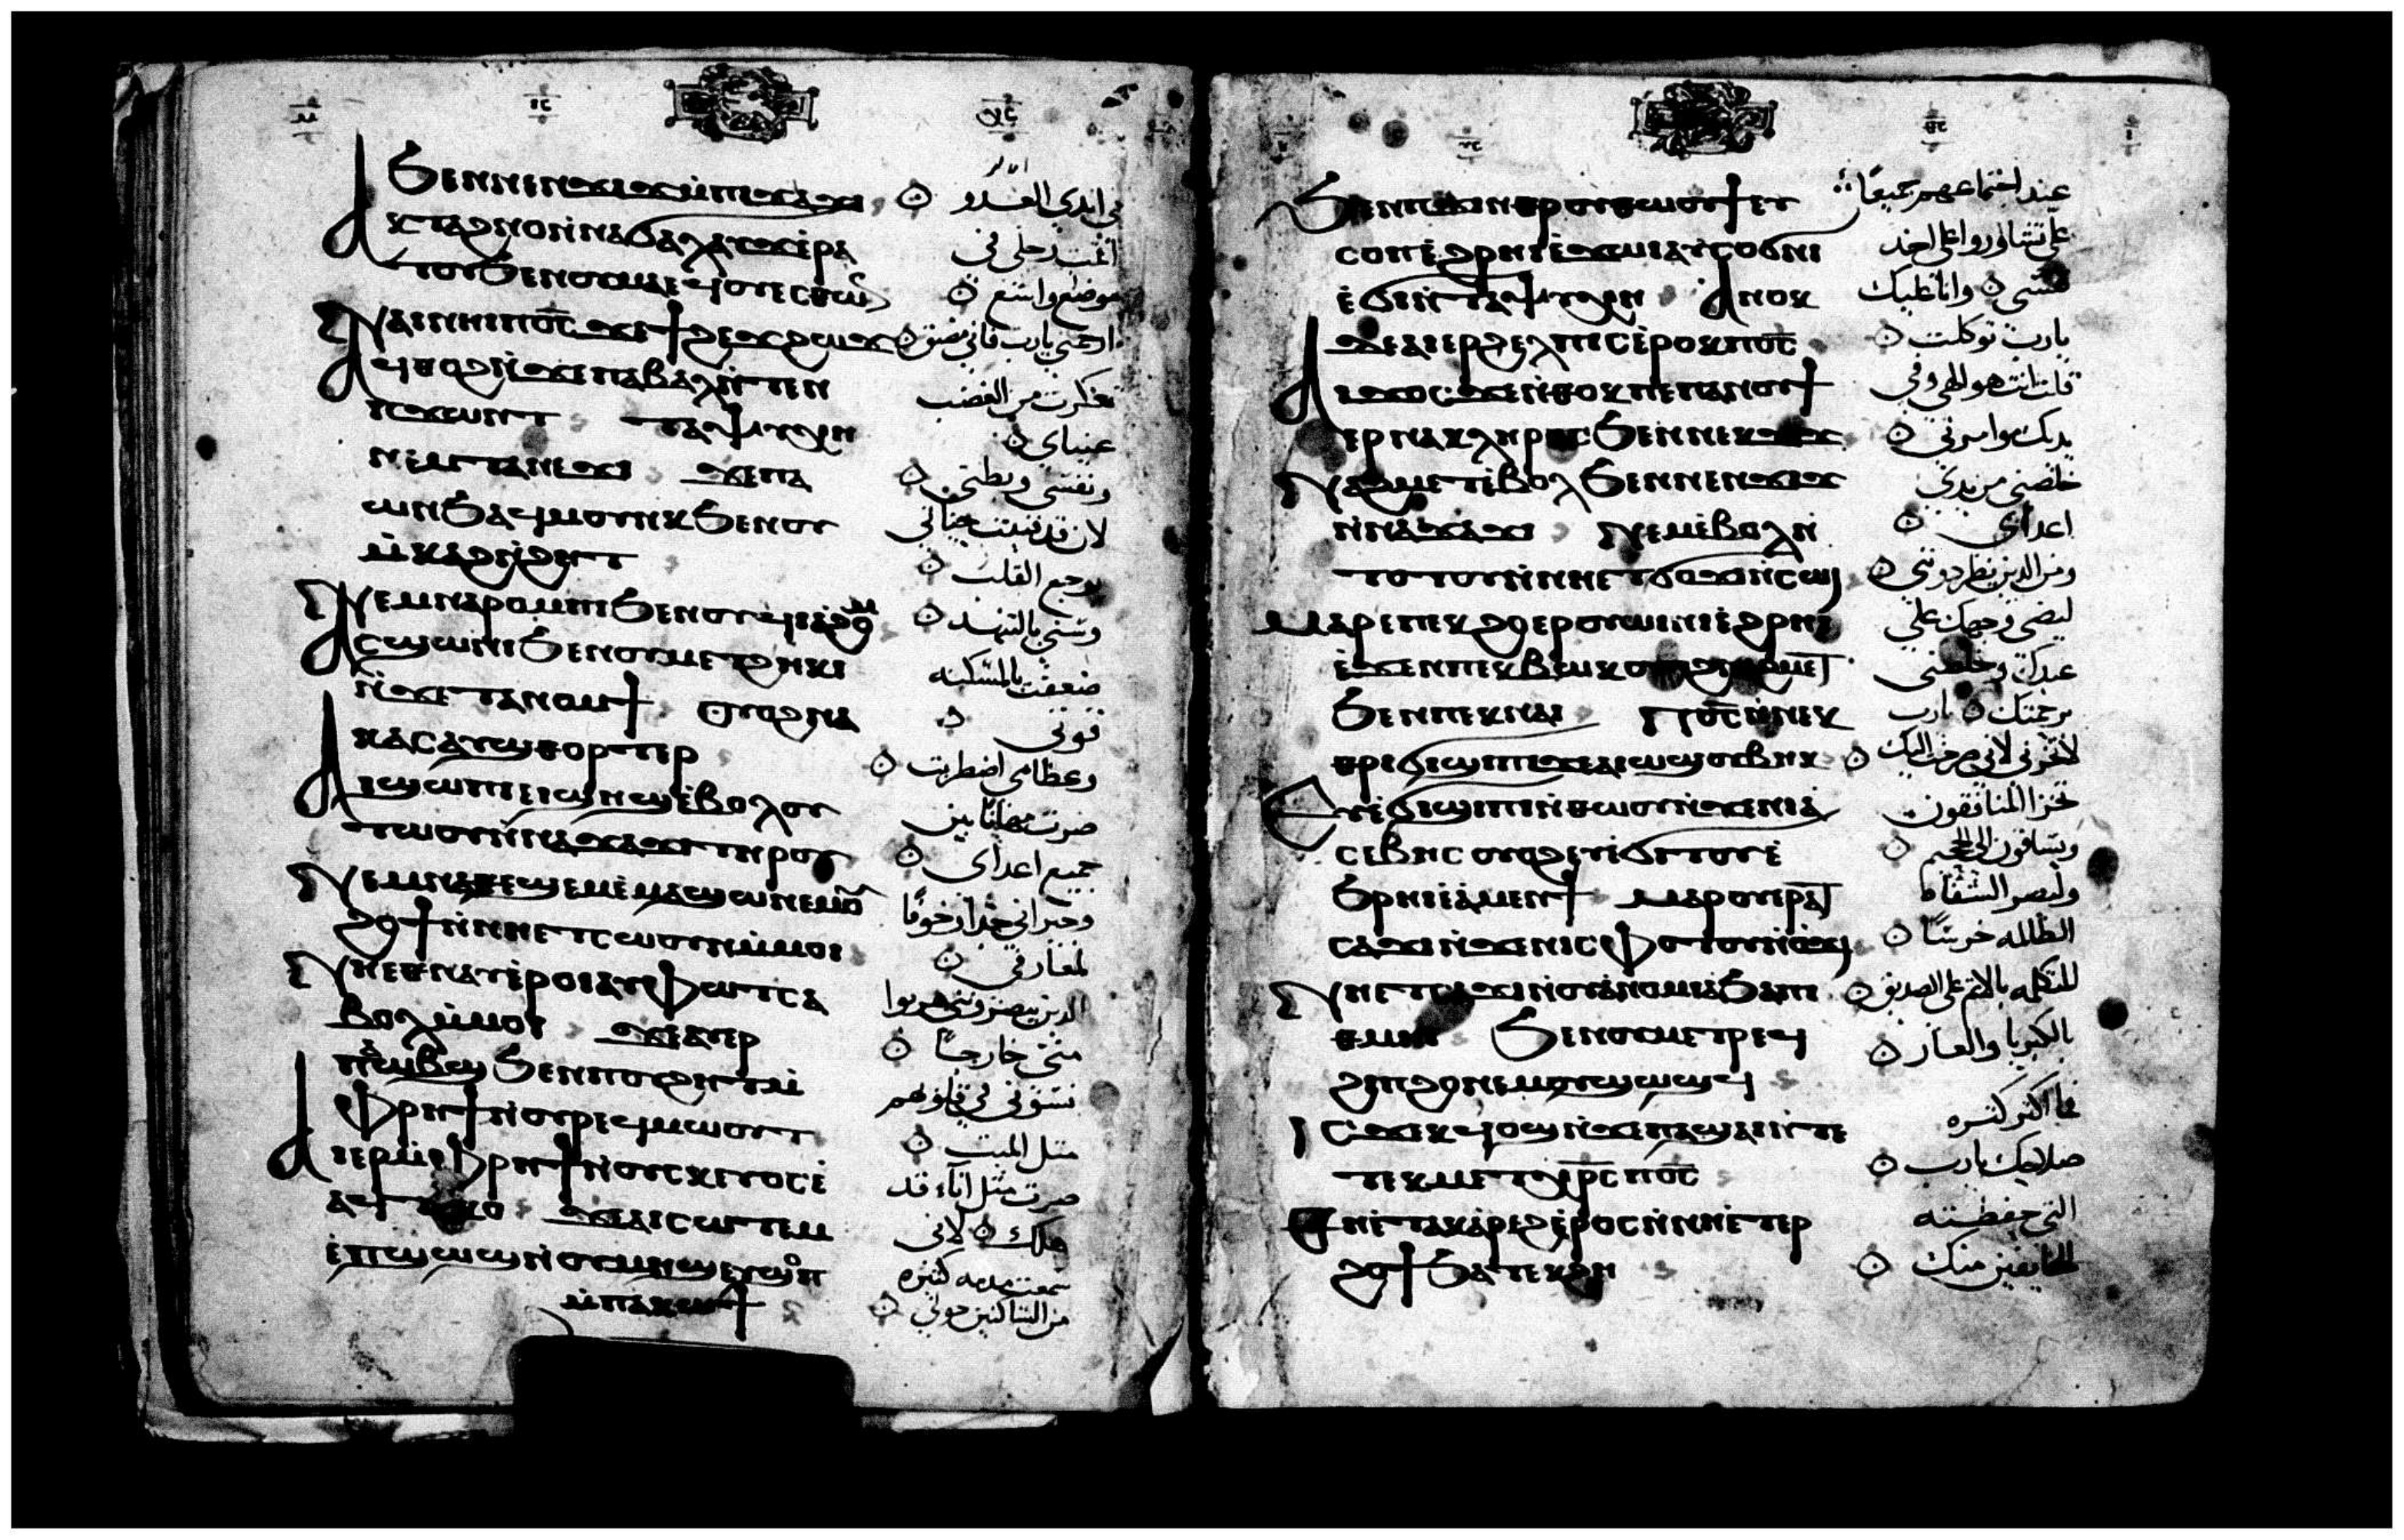 ϧⲉⲛⲛⲉⲛϫⲓϫⲙ̀ⲡⲁϫⲁϫⲓ
في ايدي العدو
ⲁⲕⲧⲁϩⲛⲟⲛ̀ⲛⲁϭⲁⲗⲁⲩϫⲉ̀ⲣⲁ
اقمت رجلي في
ⲧⲟⲩϧⲉⲛⲟⲩⲙⲁⲉϥⲟⲩⲉⲥⲑⲱⲛ
موضع واسع
ⲛⲁⲓⲛⲏⲓⲡⲟ̅ⲥ̅ϫⲉϯϩⲉϫϩⲱϫ
ارحمني يارب فاني مضيق
ⲁϥϣⲑⲟⲣⲧⲉⲣⲛ̀ϫⲉⲡⲁⲃⲁⲗϧⲉⲛ
تعكرت من الغضب
ⲡϫⲱⲛⲧ ⲧⲁⲯⲩⲭⲏ
عيناي
ⲛⲉⲙⲧⲁⲛⲉϫⲓ ϫⲉⲡⲁ
ونفسي وبطني
ⲱⲛϧⲁϥⲙⲟⲩⲛⲕϧⲉⲛⲟⲩ
لان قد فنيت حياتي
ⲙ̀ⲕⲁϩⲛ̀ϩⲏⲧ
بوجع القلب
ⲛⲉⲙⲛⲁⲣⲟⲙⲡⲓϧⲉⲛⲟⲩϥⲓⲁ̀ϩⲟⲙ
وسني بالتنهد
ⲁⲥϣⲱⲛⲓϧⲉⲛⲟⲩⲙⲉⲧϩⲏⲕⲓ
ضعفت بالمسكنه
ⲛ̀ϫⲉⲧⲁⲛⲟⲙϯ ⲟⲩⲟϩⲛⲁ
قوتي
ⲕⲁⲥⲁⲩϣⲑⲟⲣⲧⲉⲣ
وعظامي اضطربت
ⲁⲓϣⲱⲡⲓⲉⲓϣⲏϣⲉ̀ⲃⲟⲗⲟⲩ
صرت مهانا بين
ⲧⲱⲟⲩⲛ̀ⲛⲁϫⲁϫⲓⲧⲏⲣⲟⲩ
جميع اعداي
ⲛⲉⲙⲛⲁⲑⲉϣⲉⲙⲉ̀ⲙⲁϣⲱⲛⲉⲙⲟⲩ
وجيراني جدا وخوفا
ϩⲟϯⲛ̀ⲛⲏⲉⲧⲥⲱⲟⲩⲛⲙ̀ⲙⲟⲓ
لمعارفي
ⲛⲏⲉⲑⲛⲁⲩⲉ̀ⲣⲟⲓⲁⲩⲫⲱⲧⲥⲁ
الذين يبصرونني هربوا
ⲃⲟⲗⲙ̀ⲙⲟⲓ ϫⲉⲁⲩⲉⲣ
مني خارجا
ⲡⲁⲱⲃϣϧⲉⲛⲡⲟⲩϩⲏⲧⲙ̀
نسوني في قلوبهم
ⲫⲣⲏϯⲛ̀ⲟⲩⲣⲉϥⲙⲱⲟⲩⲧ
مثل الميت
ⲁⲓⲉⲣⲙ̀ⲫⲣⲏϯⲛ̀ⲟⲩⲥⲕⲉⲩⲟⲥⲉ̀
صرت مثل اناء قد
ⲁϥⲧⲁⲕⲟ ϫⲉⲁⲓⲥⲱⲧⲉⲙ
هلك لاني
ⲉ̀ⲡϣⲱϣⲛ̀ⲟⲩⲙⲏϣⲉⲩϣⲟⲡ
سمعت مذمه كثيره
ⲙ̀ⲡⲁⲕⲱϯ
من الساكنين حولي
ϧⲉⲛⲡϫⲓⲛⲑⲣⲟⲩⲑⲱⲟⲩϯⲉⲩ
عند اجتماعهم جميعا
ⲥⲟⲡⲉ̀ϩⲣⲏⲓⲉ̀ϫⲱⲓⲁⲩⲥⲟϭⲛⲓ
علي تشاوروا على اخذ
ⲉ̀ϭⲓⲛ̀ⲧⲁⲯⲩⲭⲏ ⲁⲛⲟⲕ
نفسي وانا عليك
ⲇⲉⲁⲓⲉⲣϩⲉⲗⲡⲓⲥⲉ̀ⲣⲟⲕⲡⲟ̅ⲥ̅
يارب توكلت
ⲁⲓϫⲟⲥϫⲉⲛ̀ⲑⲟⲕⲡⲉⲡⲁⲛⲟⲩϯ
قلت انت هو الهي وفي
ⲉⲣⲛⲁⲕⲗⲏⲣⲟⲥϧⲉⲛⲛⲉⲕϫⲓϫ
يديك مواريثي
ⲛⲁϩⲙⲉⲧⲉ̀ⲃⲟⲗϧⲉⲛⲛⲉⲛϫⲓϫ
خلصني من يدي
ⲛ̀ⲛⲁϫⲁϫⲓ ⲛⲉⲙⲉ̀ⲃⲟⲗⲛ̀
اعداي
ⲧⲟⲧⲟⲩⲛ̀ⲛⲏⲉⲧϭⲟϫⲓⲛ̀ⲥⲱⲓ
ومن الذين يطردونني
ⲙⲁⲣⲉⲡⲉⲕϩⲟⲉⲣⲟⲩⲱⲓⲛⲓⲉ̀ϩⲣⲏⲓ
ليضى وجهك علي
ⲉ̀ϫⲉⲛⲡⲉⲕⲃⲱⲕⲟⲩⲟϩⲛⲁϩⲙⲉⲧ
عبدك وخلصني
ϧⲉⲛⲡⲉⲕⲛⲁⲓ ⲡⲟ̅ⲥ̅ⲙ̀ⲡⲉⲛ
برحمتك يارب
ⲑⲣⲓϭⲓϣⲓⲡⲓϫⲉⲁⲓⲱϣⲟⲩⲃⲏⲕ
لا تخزني لاني صرخت اليك
ⲉⲩⲉ̀ϭⲓϣⲓⲡⲓⲛ̀ⲑⲱⲟⲩⲛ̀ϫⲉⲛⲓⲁ̀
تخزا المنافقون
ⲥⲉⲃⲏⲥⲟⲩⲟϩⲉⲩⲉ̀ϭⲓⲧⲟⲩⲉ̀
ويساقون الى الجحيم
ϧⲣⲏⲓⲉ̀ⲁ̀ⲙⲉⲛϯ ⲙⲁⲣⲟⲩⲉⲣⲁⲧ
ولتصر الشفاه
ⲥⲁϫⲓⲛ̀ϫⲉⲛⲓⲥⲫⲟⲧⲟⲩⲛ̀ϭⲓ
الظالمه خرسا
ⲛⲏⲉⲧⲥⲁϫⲓⲛ̀ⲟⲩⲁ̀ⲛⲟⲙⲓⲁϧⲁⲡⲓ
المتكلمه بالاثم على الصديق
ⲑⲙⲏⲓ ϧⲉⲛⲟⲩⲙⲉⲧⲣⲉϥ
بالكبريا والعار
ϩⲓⲡϩⲟⲛⲉⲙⲟⲩϣⲱϣϥ
ⲓⲥϫⲉⲕϥⲟϣⲛ̀ϫⲉⲡⲁϣⲁⲓⲛ̀ⲧⲉ
فما اكثر كثره
ⲧⲉⲕⲙⲉⲧⲭⲣ̅ⲥ̅ⲡⲟ̅ⲥ̅
صلاحك يارب
ⲑⲏⲉⲧⲁⲕⲁ̀ⲣⲉϩⲉ̀ⲣⲟⲥⲛ̀ⲛⲏⲉⲧⲉⲣ
التي حفظته
ϩⲟϯϧⲁⲧⲉⲕϩⲏ
للخايفين منك